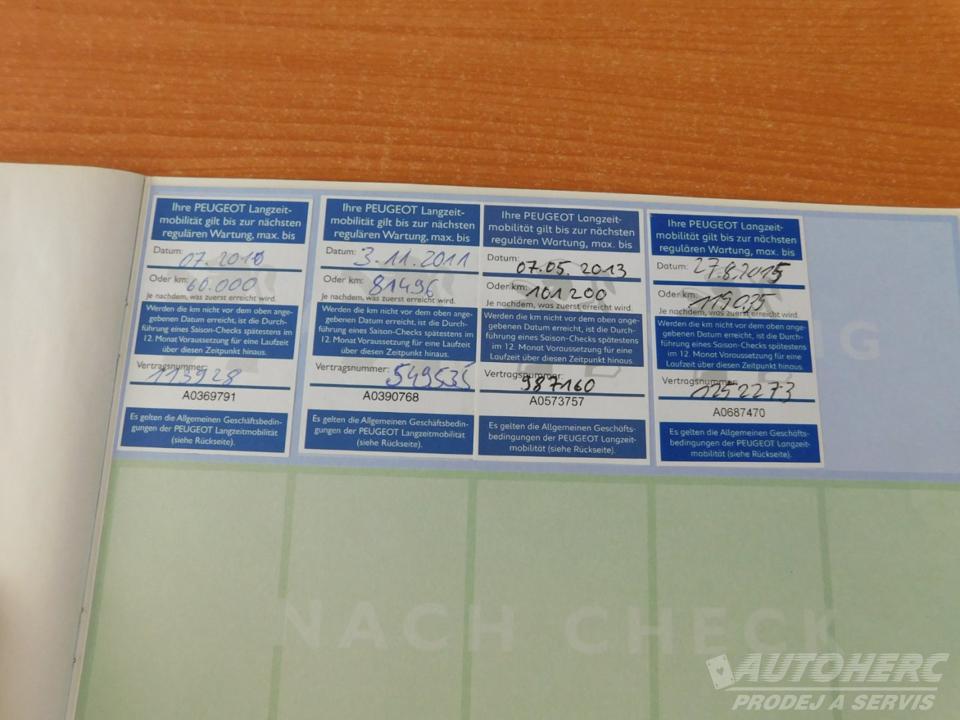 Ihre PEUGEOT Langzeit-
mobilität gilt bis zur nächsten
regulären Wartung, max. bis
Datum: 07.2010
Oder km: 60.000
Je nachdem, was zuerst erreicht wird.
Werden die km nicht vor dem oben ange-
gebenen Datum erreicht, ist die Durch-
führung eines Saison-Checks spätestens im
12. Monat Voraussetzung für eine Laufzeit
über diesen Zeitpunkt hinaus.
Vertragsnummer:
113928
A0369791
Es gelten die Allgemeinen Geschäftsbedin-
gungen der PEUGEOT Langzeitmobilität
(siehe Rückseite).
Ihre PEUGEOT Langzeit-
mobilität gilt bis zur nächsten
regulären Wartung, max. bis
Datum: 3.11.2011
Oder km: 81496
Je nachdem, was zuerst erreicht wird.
Werden die km nicht vor dem oben ange-
gebenen Datum erreicht, ist die Durch-
führung eines Saison-Checks spätestens im
12. Monat Voraussetzung für eine Laufzeit
über diesen Zeitpunkt hinaus.
Vertragsnummer: 549535
A0390768
Es gelten die Allgemeinen Geschäftsbedin-
gungen der PEUGEOT Langzeitmobilität
(siehe Rückseite).
Ihre PEUGEOT Langzeit-
mobilität gilt bis zur nächsten
regulären Wartung, max. bis
Datum: 07.05.2013
Oder km: 101200
Je nachdem, was zuerst erreicht wird.
Werden die km nicht vor dem oben ange-
gebenen Datum erreicht, ist die Durch-
führung eines Saison-Checks spätestens im
12. Monat Voraussetzung für eine Laufzeit
über diesen Zeitpunkt hinaus.
Vertragsnummer:
987160
A0573757
Es gelten die Allgemeinen Geschäfts-
bedingungen der PEUGEOT Langzeit-
mobilität (siehe Rückseite).
Ihre PEUGEOT Langzeit-
mobilität gilt bis zur nächsten
regulären Wartung, max. bis
Datum: 27.8.2015
Oder km: 119035
Je nachdem, was zuerst erreicht wird.
Werden die km nicht vor dem oben ange-
gebenen Datum erreicht, ist die Durch-
führung eines Saison-Checks spätestens im
12. Monat Voraussetzung für eine Laufzeit
über diesen Zeitpunkt hinaus.
Vertragsnummer:
1252273
A0687470
Es gelten die Allgemeinen Geschäfts-
bedingungen der PEUGEOT Langzeit-
mobilität (siehe Rückseite).
NACH CHECK
AUTOHERC
PRODEJ A SERVIS